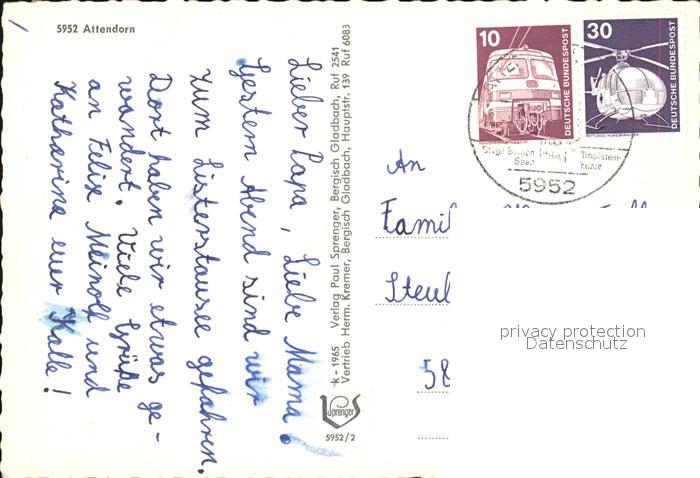 5952 Attendorn
Lieber Papa, Liebe Mama!
Gestern Abend sind wir
zum Listerstausee gefahren.
Dort haben wir etwas ge-
wandert. Viele Grüße
an Felix Meinolf und
Katharina euer Kalle!
k - 1965 Verlag Paul Sprenger, Bergisch Gladbach, Ruf 2541
Vertrieb Herm. Kremer, Bergisch Gladbach, Hauptstr. 139 Ruf 6083
Sprenger
5952/2
10
DEUTSCHE BUNDESPOST
30
DEUTSCHE BUNDESPOST
Tropfstein-
höhle
Seen
5952
An
Famil
Steub
58
privacy protection
Datenschutz